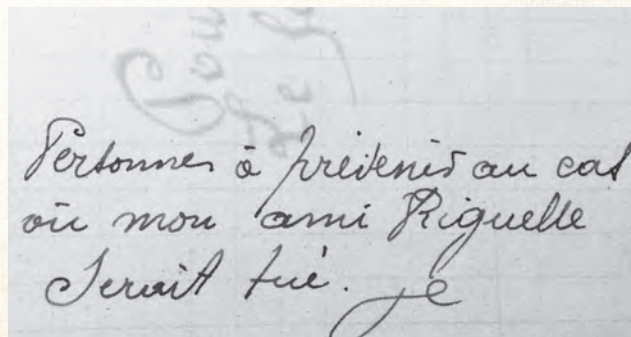 Pour
Le
Personnes à prévenir au cas
où mon ami Riguelle
Serait tué. Je